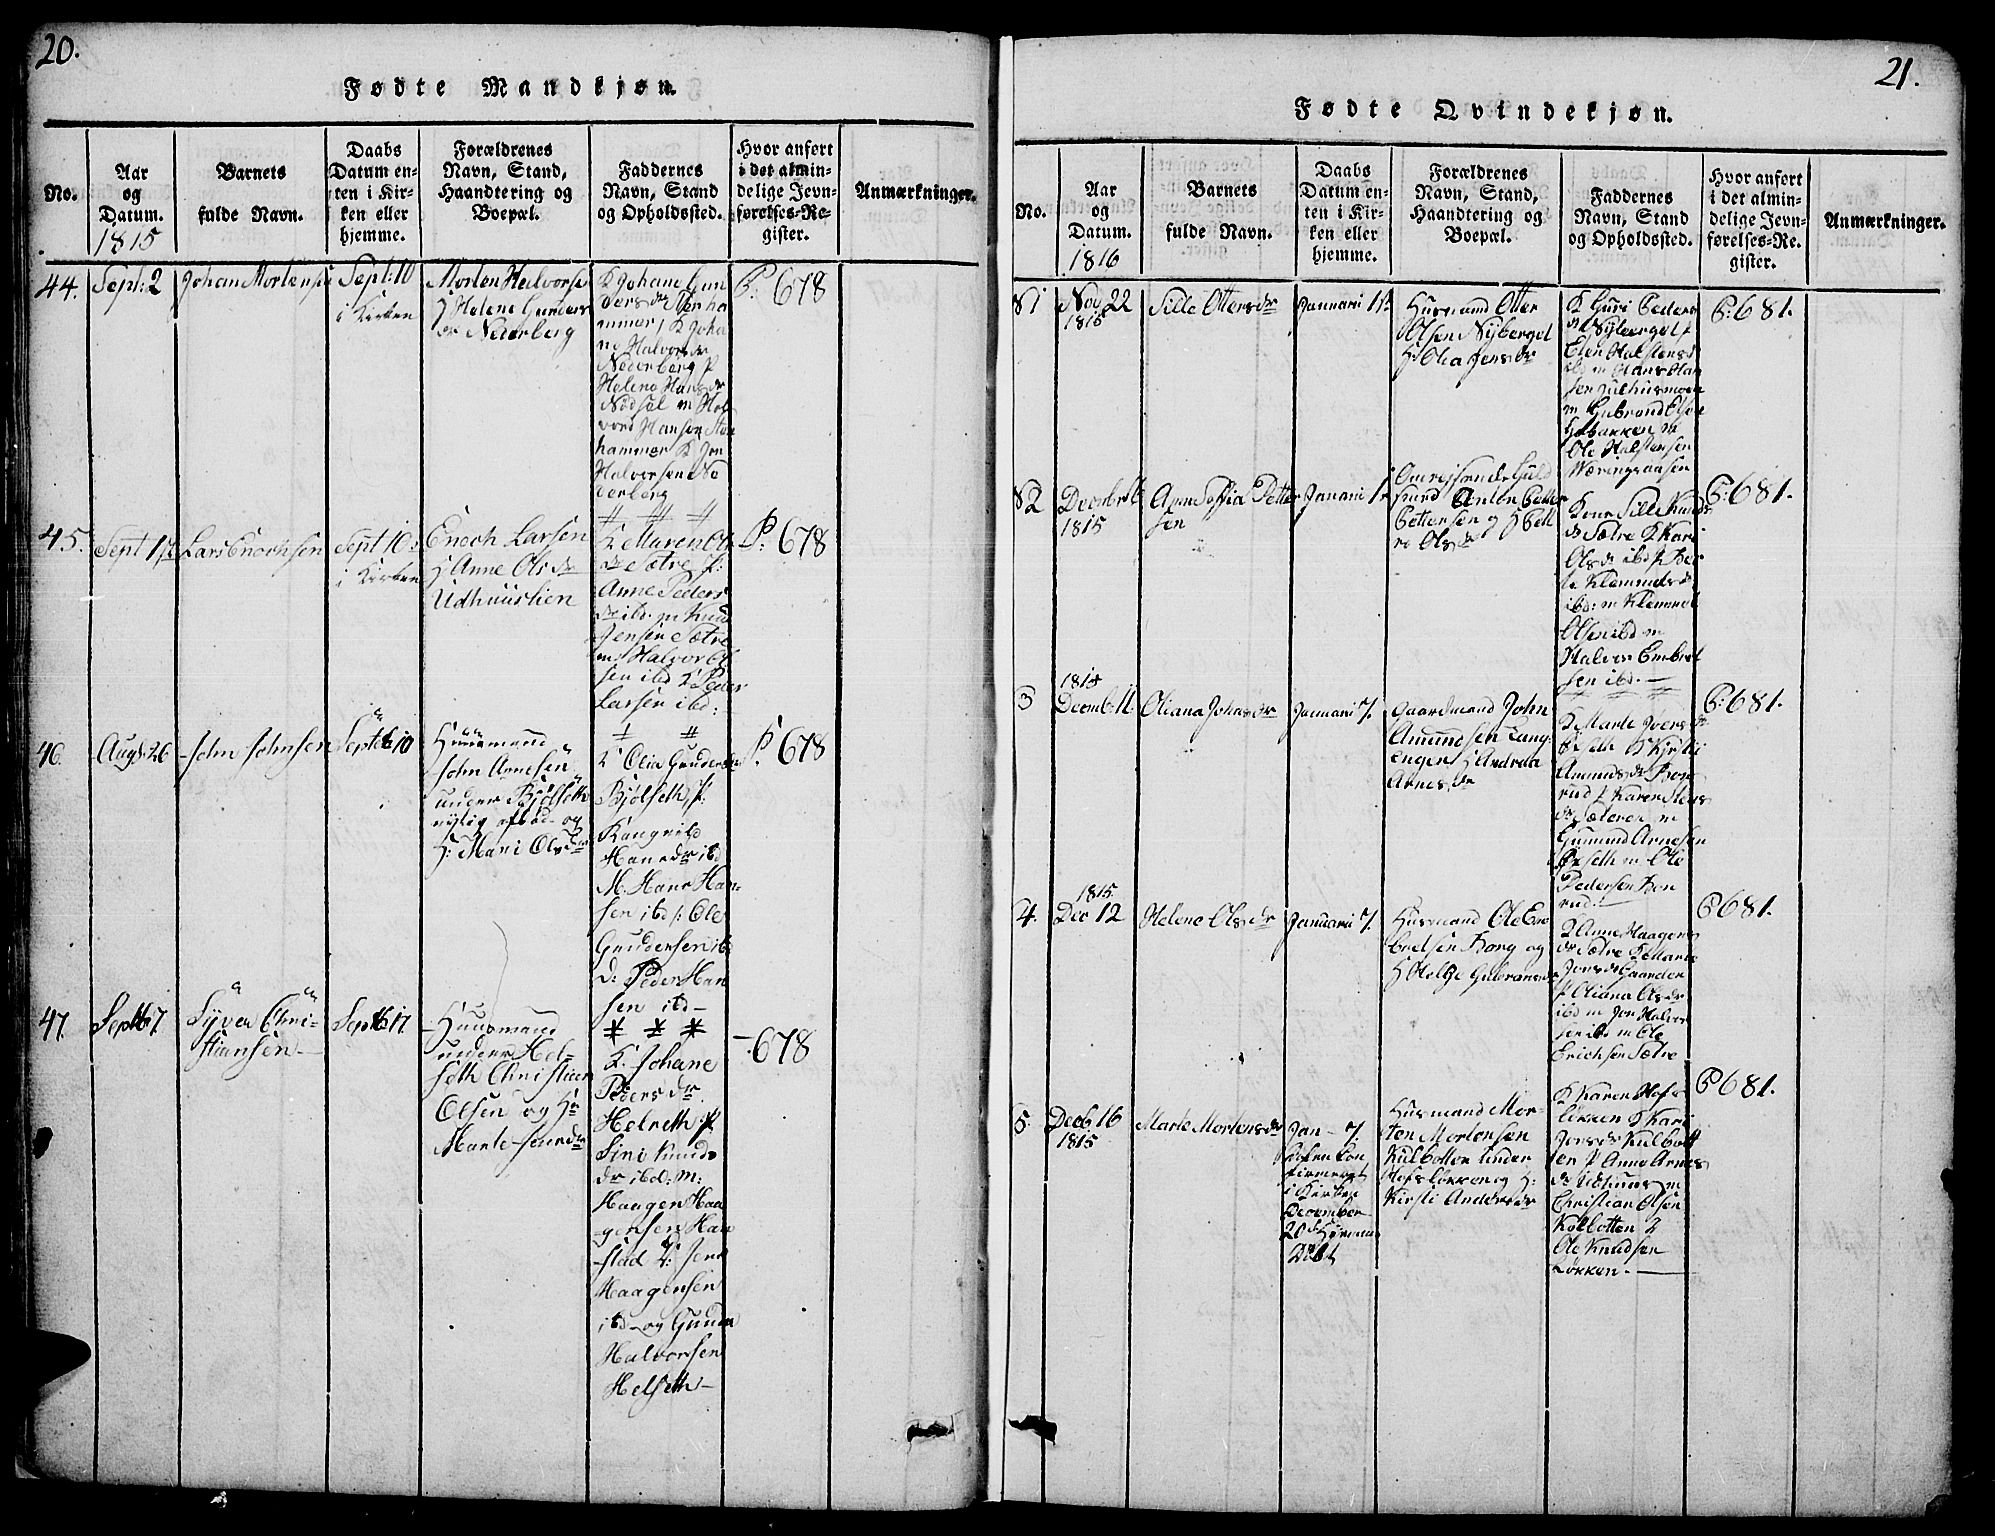 20.
Fødte Mandkjøn.
No.
Aar
og
Datum.
1815
Barnets
fulde Navn.
Daabs
Datum en-
ten i Kir-
ken eller
hjemme.
Forældrenes
Navn, Stand,
Haandtering og
Boepæl.
Faddernes
Navn, Stand
og Opholdssted.
Hvor anført
i det almin-
delige Jevn-
førelses-Re-
gister.
Anmærkninger.
44.
Sept: 2
Johan Mortensen
Sept: 10
i Kirken
Morten Halvorsen
Helene Gunders
dr Nederberg
K Johane Gun
dersdr
K Joha
ne Halvorsdr
Nederberg P
Helene Hansdr
Nødsøl m Hal
vord Hansen
hammer K Jon
Halvorsen Ne
derberg
45.
Sept 1ste
Lars Enochsen
Sept 10:
i Kirken
Enoch Larsen
H Anne Olsdr
Udhuuslien
K Maren Ols
dr Sætre P:
Anne Peders
dr ibd. m Knud
Jensen Sætre
m Halvor Ol
sen ibd K Peder
Larsen ibd:
P: 678
46.
Augst: 26
John Johnsen
Septb 10
Huusmand
John Arnesen
under Bjølseth
nylig afdød og
H: Mari Olsdr
K Olia Gundersdr
Bjølseth P:
Rangnild
Hansdr ibd
M. Hans Han-
sen ibd /: Ole
Gundersen ib
d: Peder Han
sen ibd-
P. 678
47.
Septb 7
Syver Chri-
stiansen
Septb 17
Huusmand
under Hel-
seth Christian
Olsen og Hr
Marte
K. Johane
Pedersdr
Helseth P
Siri Knuds
dr ibd: m:
Haagen Haa
gensen Han
stad K: Jens
Haagensen
ibd og Gunder
Halvorsen
Helseth-
678
21.
Fødte Qvindekjøn.
No.
Aar
og
Datum.
1816
Barnets
fulde Navn.
Daabs
Datum en-
ten i Kir-
ken eller
hjemme.
Forældrenes
Navn, Stand,
Haandtering og
Boepæl.
Faddernes
Navn, Stand
og Opholdssted.
Hvor anført
i det almin-
delige Jevn-
førelses-Re-
gister.
Anmærkninger.
Nov 22
1815
Sille Ottersdr
Januari 1ste
Husmand Otter
Olsen Nybergel
H Olia Jensdr
K Guri Peders
dr Nybergel P
Elen Halstensd
ibd m Hans Han
sen Julhusmoen
m Gubrand Elsen
Ole Halstensen
Wæringsaasen
P: 681.
1815
Anne Soffia Petter
sen
Januari 1.
Omreisende Guld
smed Anton Petter
Pettersen og H
Olsdr
Kone Sille Knuds
dr Sætre K Kari
Olsdr ibd P Ber
te Klemmetsd
ibd: m Klemmet
Olsen ibd m
Halvor Embret
sen ibd.
P: 681.
3
Decmb. 11.
Oliana Johnsdr
Januari 7.
Gaardmand John
Amundsen Lang
engen H Andrea
Arnesdr
K Marte Joersdr
K Kjersti
Amundsdr Bon
rud P Karen Stens
dr Sæteren m
Gunund Arnesen
m Ole
Pedersen Bon
rud.
P: 681.
4.
1815
Dec 12
Helene Olsdr
Januari 7.
Husmand Ole Em
bretsen Borg og
H Helge Gubransdr
K Anne Haagens
dr Sætre K Marte
Jonsdr Gaarder
P Oliana Olsdr
ibd m Jon Halvor
sen ibd m Ole
Erichsen Sætre
P 681.
5.
Decb. 16
1815
Marte Mortensdr
Jan - 7.
i Kirken
December
20de Hjemme
Døbt
Husmand Mor-
ten Mortensen
Kulbotten under
Hofsløkken og H:
Kirsti Andersdr
K Karen Hofs
løkken K Kari
Jonsdr Kulbott
en P Anne Arnes
dr Udhuus m
Christian Olsen
Kolbotten
Ole Knudsen
Løkken.
P 681.